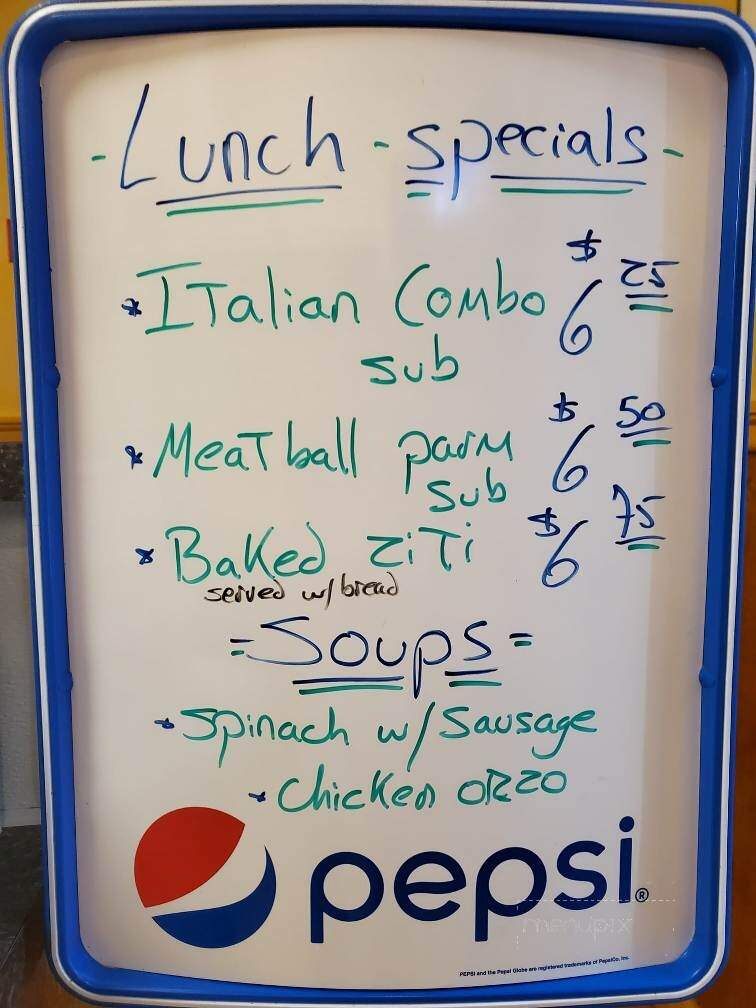 - Lunch - specials -
* Italian Combo $6 25
sub
* Meatball parm $6 50
sub
* Baked ziti $6 75
served w/ bread
= Soups =
* Spinach w/ Sausage
* Chicken orzo
pepsi®
menupix
PEPSI and the Pepsi Globe are registered trademarks of PepsiCo, Inc.